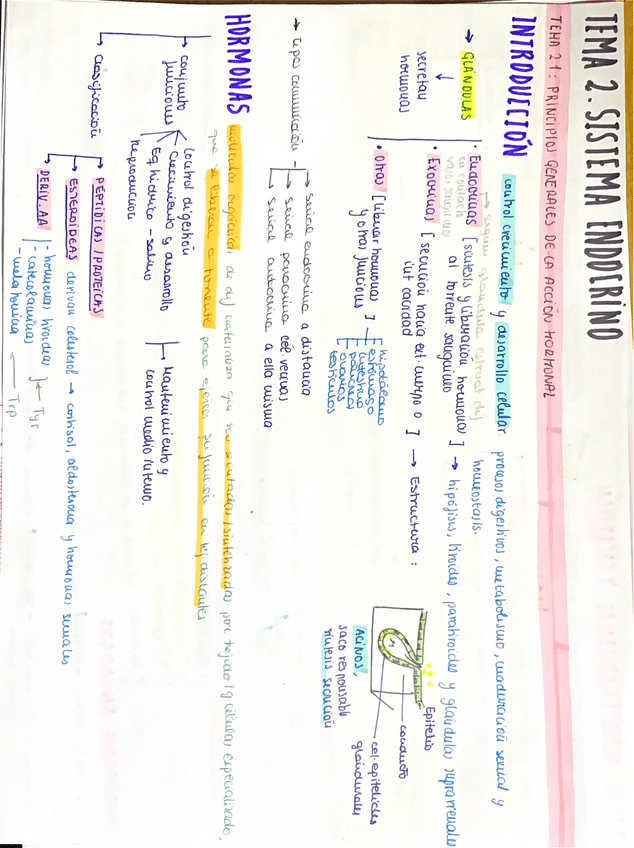 TEMA 2. SISTEMA ENDOCRINO
TEMA 2.1: PRINCIPIOS GENERALES DE LA ACCIÓN HORMONAL
INTRODUCCIÓN control crecimiento y desarrollo celular. procesos digestivos, metabolismo, maduración sexual y
homeostasis.
→ según glándula estruct dif
→ GLÁNDULAS
secretan
hormonas
· Endocrinas [síntesis y liberación hormonas
al torrente sanguíneo] → hipófisis, tiroides, paratiroides y glándulas suprarrenales
en contacto
vaso sanguíneo
· Exocrinas [secreción hacia ext cuerpo o
int cavidad] → Estructura:
Epitelio
conducto
cel. epiteliales
glandulares
ACINOS,
saco responsable
síntesis secreción
· Otras [liberar hormonas
y otras funciones]
hipotálamo
estómago
intestino
páncreas
ovarios
testículos
→ Tipos comunicación
→ señal endocrina a distancia
→ señal paracrina cél. vecinas
→ señal autocrina a ella misma
HORMONAS moléculas orgánicas de dif naturaleza que son secretadas/sintetizadas por: tejido/g células especializado,
que se liberan a torrente para ejercer su función en tej distantes
→ conjunto
funciones
control digestión
crecimiento y desarrollo
Eq hídrico-salino
Reproducción
Mantenimiento y
control medio interno.
→ clasificación
→ PEPTÍDICAS / PROTEICAS
→ ESTEROIDEAS derivan colesterol → cortisol, aldosterona y hormonas sexuales
→ DERIV. AA
- hormonas tiroideas
- catecolaminas
← Tyr
- melatonina ← Trp